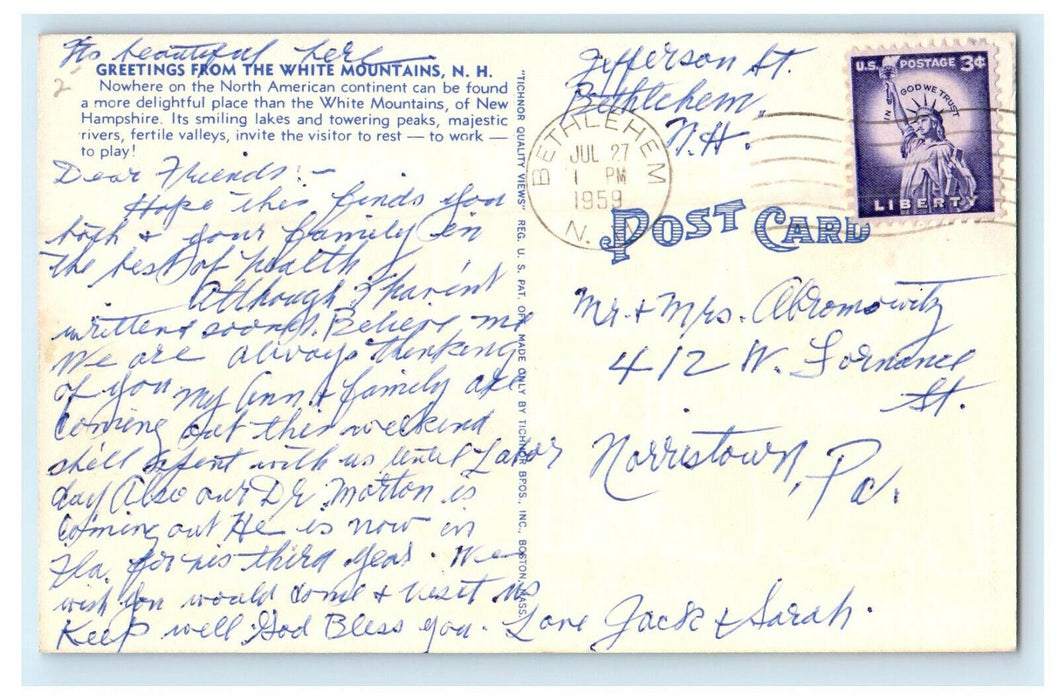 Its beautiful here
GREETINGS FROM THE WHITE MOUNTAINS, N. H.
Nowhere on the North American continent can be found
a more delightful place than the White Mountains, of New
Hampshire. Its smiling lakes and towering peaks, majestic
rivers, fertile valleys, invite the visitor to rest — to work —
to play!
Dear Friends:-
Hope this finds you
both & your family in
the best of health
Although I havint
written sooner. Believe me
We are always thinking
of you my Ann & family are
coming out this weekend
shell spent with us until Labor
day Also our Dr. Morton is
coming out He is now in
Fla. for his third year. We
wish you would come & visit us
Keep well God Bless you. Love Jack & Sarah.
"TICHNOR QUALITY VIEWS" REG. U. S. PAT. OFF. MADE ONLY BY TICHNOR BROS., INC., BOSTON, MASS.
Jefferson St.
Bethlehem,
N.H.
BETHLEHEM
JUL 27
1 PM
1959
N.
U.S. POSTAGE 3¢
IN GOD WE TRUST
LIBERTY
POST CARD
Mr. & Mrs. Abromowitz
412 W. Lornance
St.
Norristown, Pa.